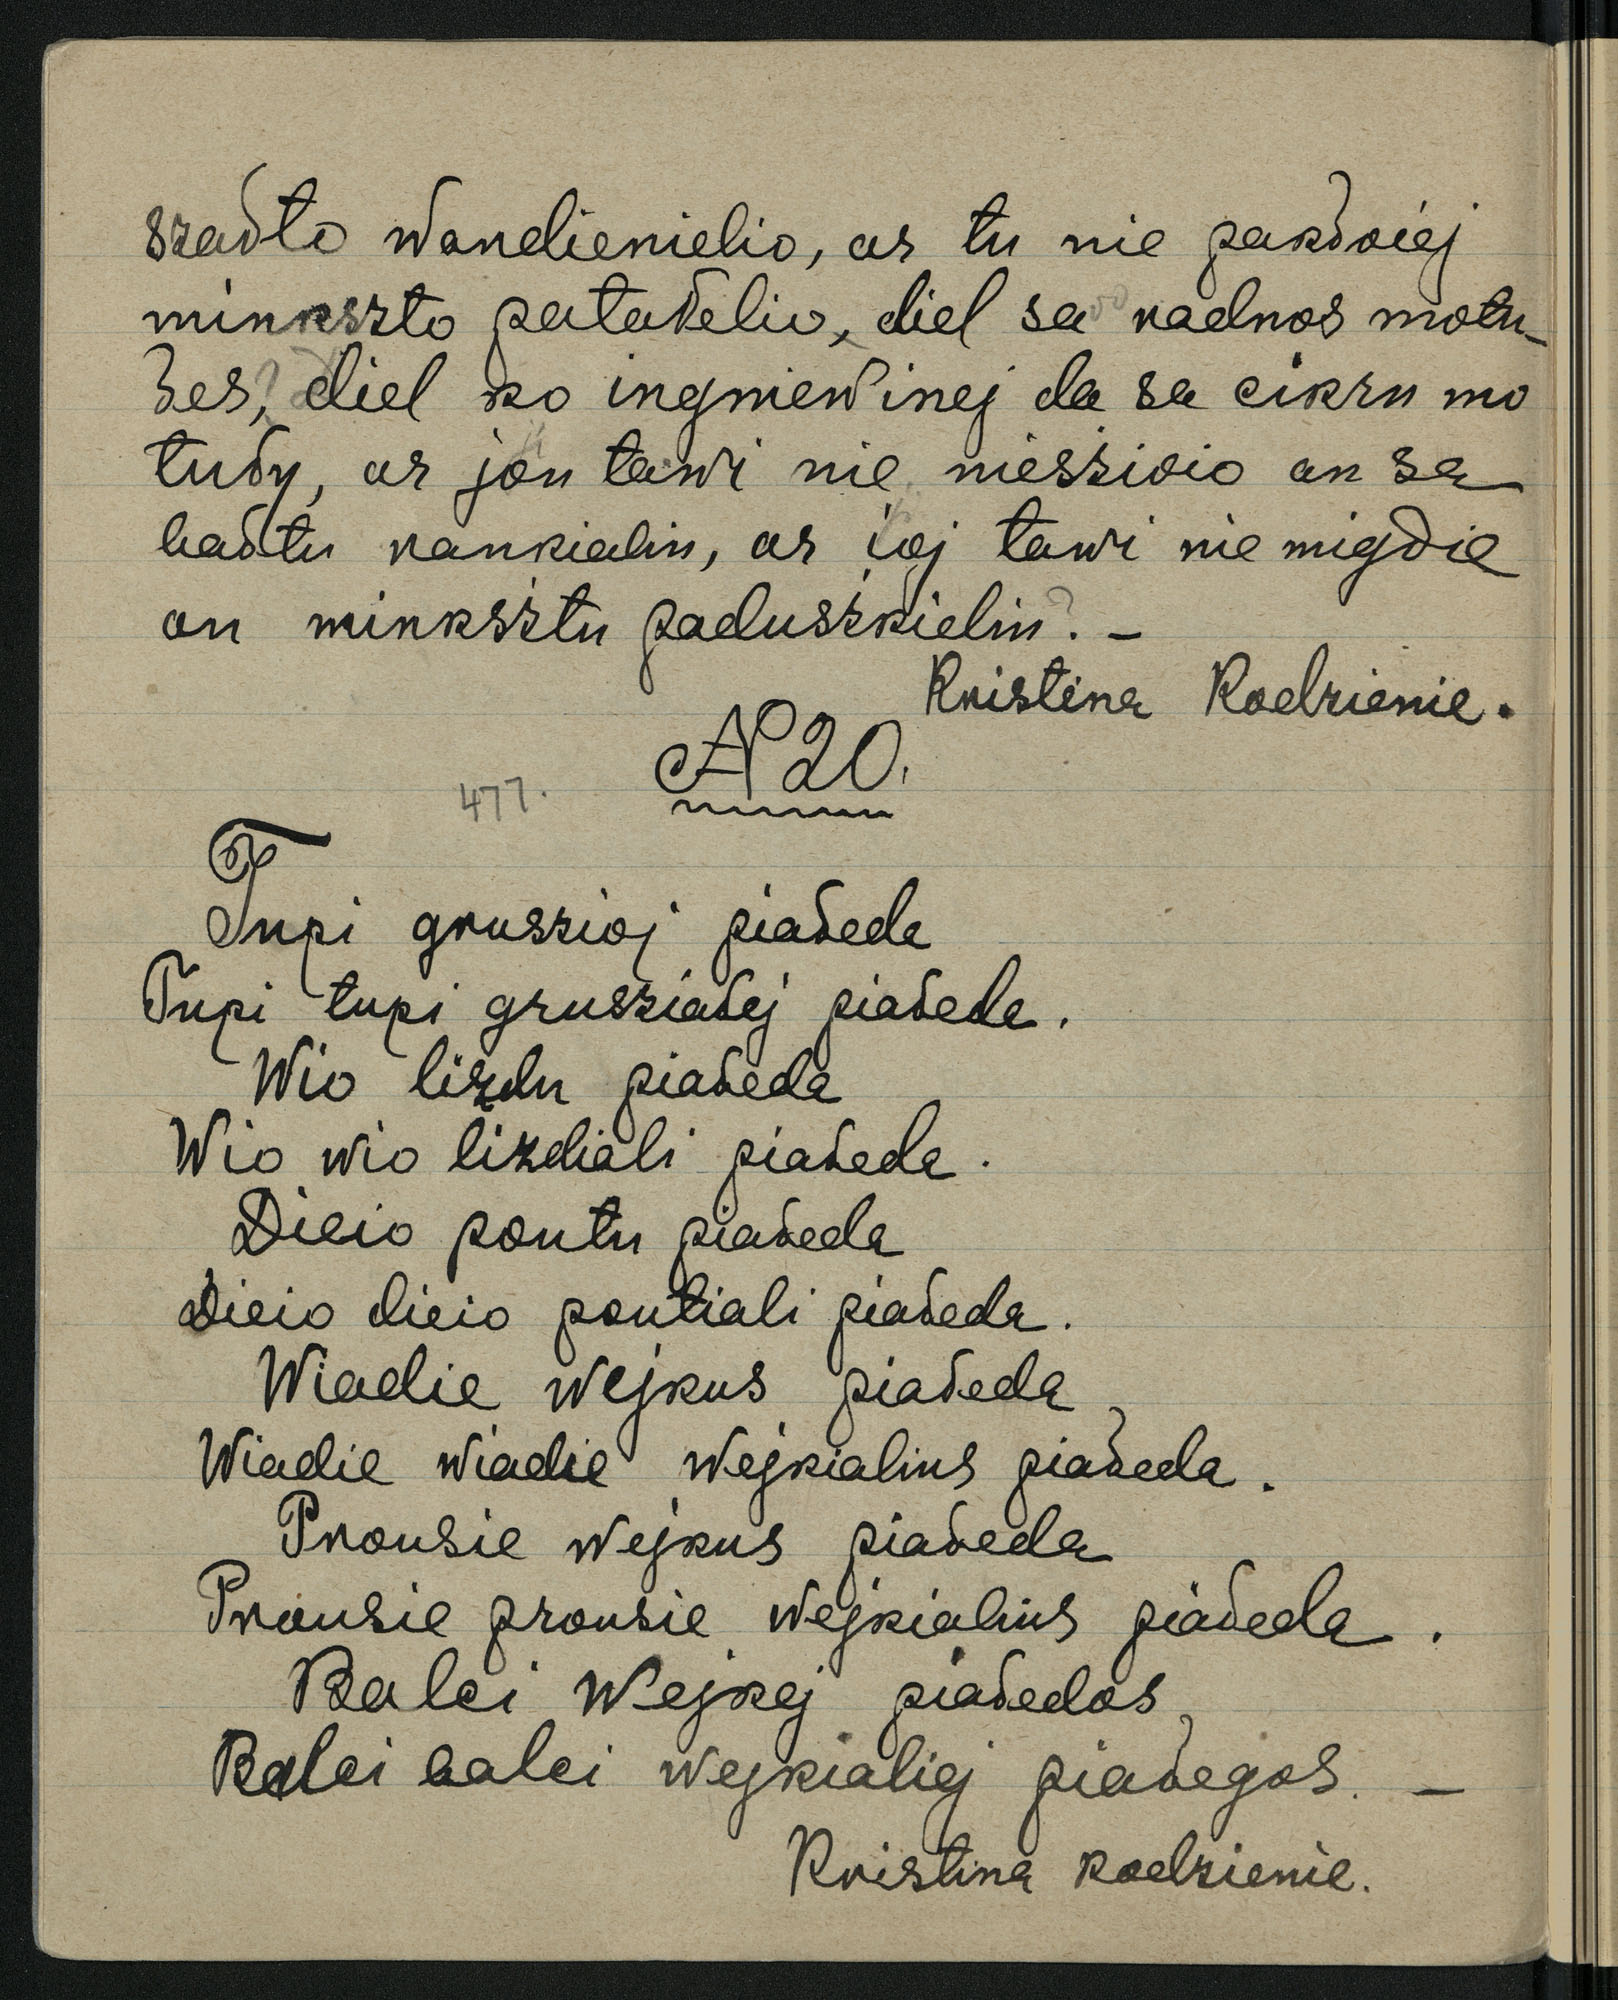 szałto wandienielio, ar tu nie pakłoiej
minkszto patałelio, diel sa radnos motu-
łes, diel ko ingniewinej da sa cikru mo
tuły, ar jou tawi nie nieszioio an sa
bałtu rankialiu, ar ioj tawi nie migdie
on minksztu paduszkieliu? -
Kristina Rodzienie.
N 20.
477.
Tupi gruszioj piałeda
Tupi tupi grusziałej piałeda.
Wio lizdu piałeda
Wio wio lizdiali piałeda.
Dieio pontu piałeda
Dieio dieio pontiali piałeda.
Wiadie wejkus piałeda,
Wiadie wiadie wejkialius piałeda.
Prousie wejkus piałeda
Prousie prousie wejkialius piałeda.
Balci wejkej piałedos,
Balci balci wejkialiej piałegos. -
Kristina Rodzienie.